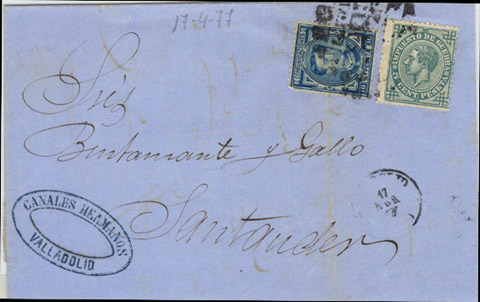 17-4-77
IMPUESTO DE GUERRA
5 CENT. PESETA
Sres
Bustamante y Gallo
Santander
CANALES HERMANOS
VALLADOLID
17
ABR